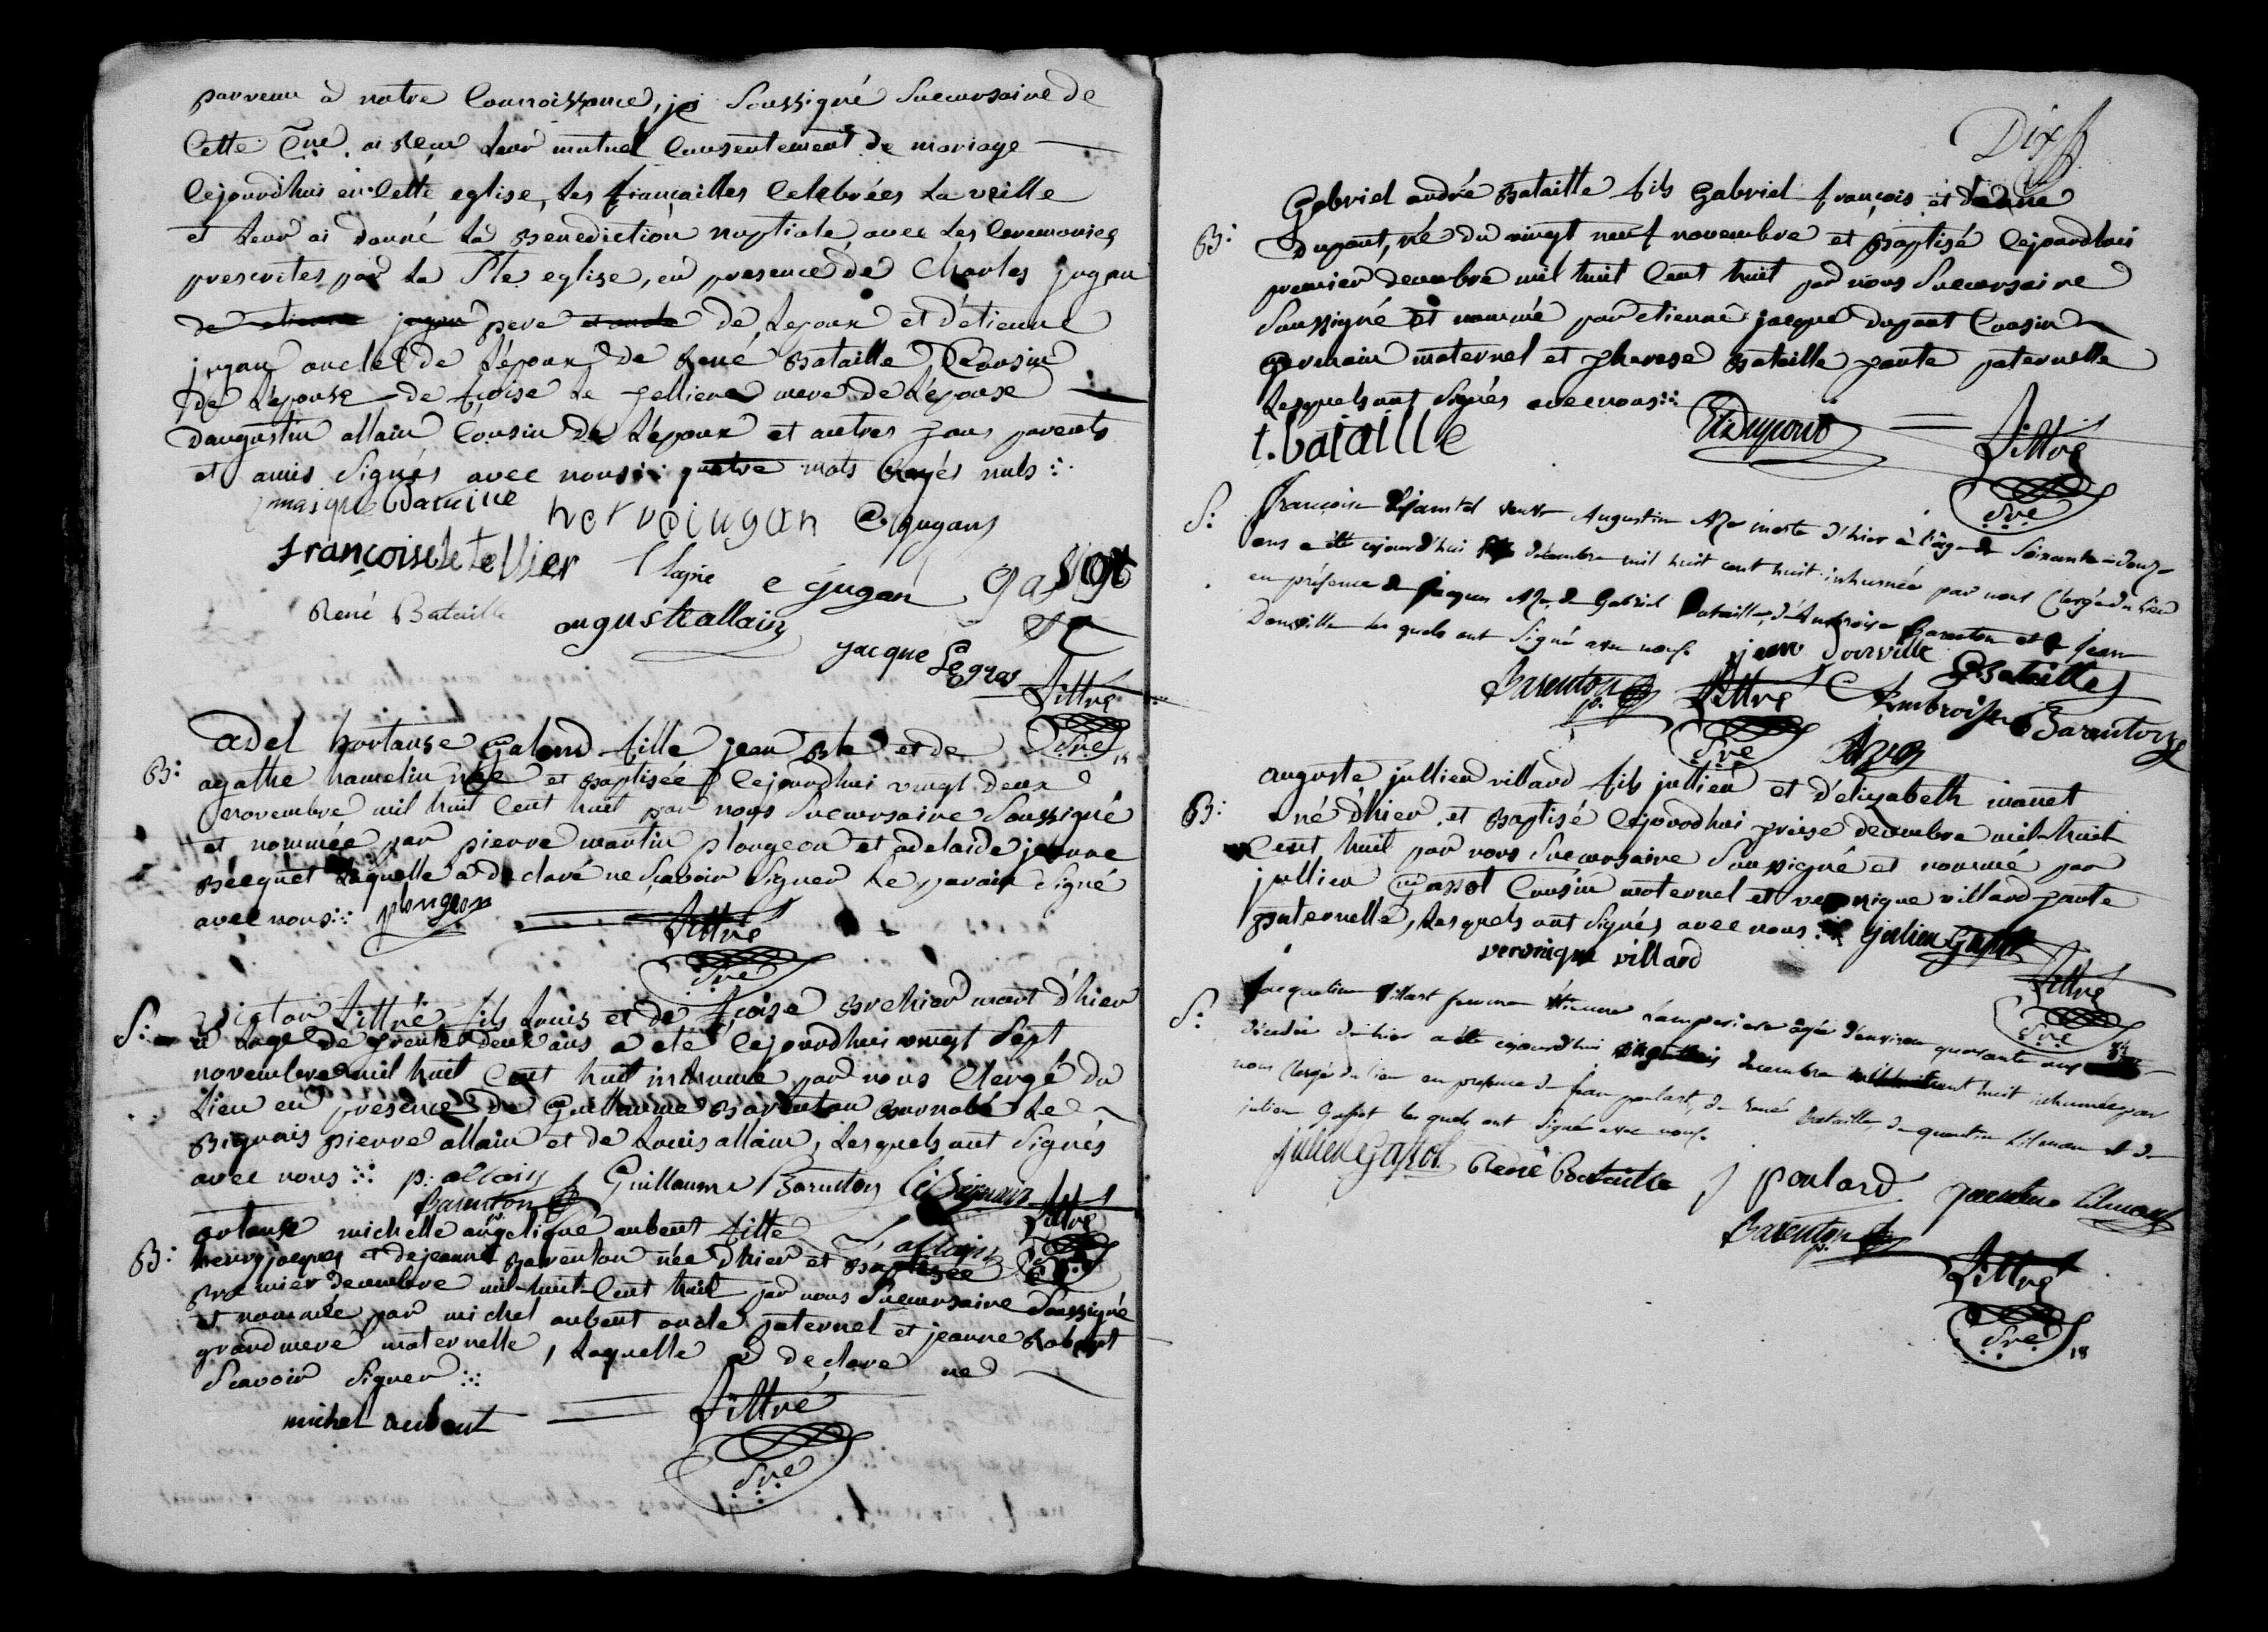 parvenu à notre Connoissance, je Soussigné Succursaire de
Cette Cne. ai Recu leur mutuel Consentement de mariage
Cejourdhui en Cette eglise, Les fiançailles Celebrées La veille
et leur ai donné La Benediction nuptiale, avec Les Ceremonies
prescrites par La Ste eglise, en presence de Charles jugan
de etienne jugan pere et oncle de L'epoux et d'étienne
jugan oncle de L'époux de René Bataille Cousin
de L'epouse de fçoise Le tellier mere de L'épouse
d'augustin allain Cousin de L'époux et autres tous parents
et amis Signés avec nous quatre mots Rayés nuls
hervé jugan C. jugan
françoise le tellier e jugan gassot
René Bataille auguste allain
jacque Legros
Littré
Sre
adel hortanse Galand fille jean Bte et de
B: agathe hamelin née et Baptisée Cejourdhui vingt deux
novembre mil huit Cent huit par nous Succursaire Soussigné
et nommée par pierre martin plongeon et adelaide jeanne
Becquet Laquelle a declaré ne Scavoir Signer Le parain Signé
avec nous plongeon
Littré
Sre
victor Littré fils Louis et de fçoise Brehier mort d'hier
S: a Lage de trente deux ans a été Cejourdhui vingt Sept
novembre mil huit Cent huit inhumé par nous Clergé du
Lieu en presence de Guillaume Barenton Barnabé Le
Bignais pierre allain et de Louis allain, Lesquels ont Signés
avec nous p. allain Guillaume Barenton Le Bignais
Barenton p. Littré
ortanse michelle angelique aubeut fille L allain Sre
B: henry jacques et de jeanne Barenton née d'hier et Baptisée
premier decembre mil huit Cent huit par nous Succursaire Soussigné
et nommée par michel aubeut oncle paternel et jeanne Robert
grandmere maternelle, Laquelle a declare ne
Scavoir Signer
michel aubeut Littré
Sre
Dix
Gabriel andré Bataille fils Gabriel françois et de
B: Dupont, né du vingt neuf novembre et Baptisé Cejourdhui
premier decembre mil huit Cent huit par nous Succursaire
Soussigné et nommé par etienne jacque dupont Cousin
Germain maternel et therese Bataille tante paternelle
Lesquels ont Signés avec nous
t. bataille Et Dupont Littré
Sre
S: françoise veuve Augustin morte d'hier à l'âge de soixante-douze
ans a été cejourd'hui décembre mil huit cent huit inhumée par nous Clergé du lieu
en présence de jacques de Gabriel Bataille, d'Ambroise Barenton et de jean
Dourville les quels ont Signé avec nous. jean dourville
G Bataille
Barenton p. Littré Ambroise Barenton
Sre
auguste jullien villard fils jullien et d'elizabeth manet
B: né d'hier, et Baptisé Cejourdhui treise decembre mil huit
Cent huit par nous Succursaire Soussigné et nommé par
jullien Gassot Cousin maternel et veronique villard tante
paternelle, Lesquels ont Signés avec nous julien Gassot
veronique villard Littré
Sre
S: Jacqueline villart femme Etienne Lamperiere âgée d'environ quarante ans
décédée du hier a été cejourd'hui decembre huit inhumée par
nous Clergé du lieu en présence de jean poulart, de René Bataille, de quentin Lilman et de
julien Gassot les quels ont Signé avec nous.
julien Gassot René Bataille J poulard
Barenton p. Littré
Sre
18